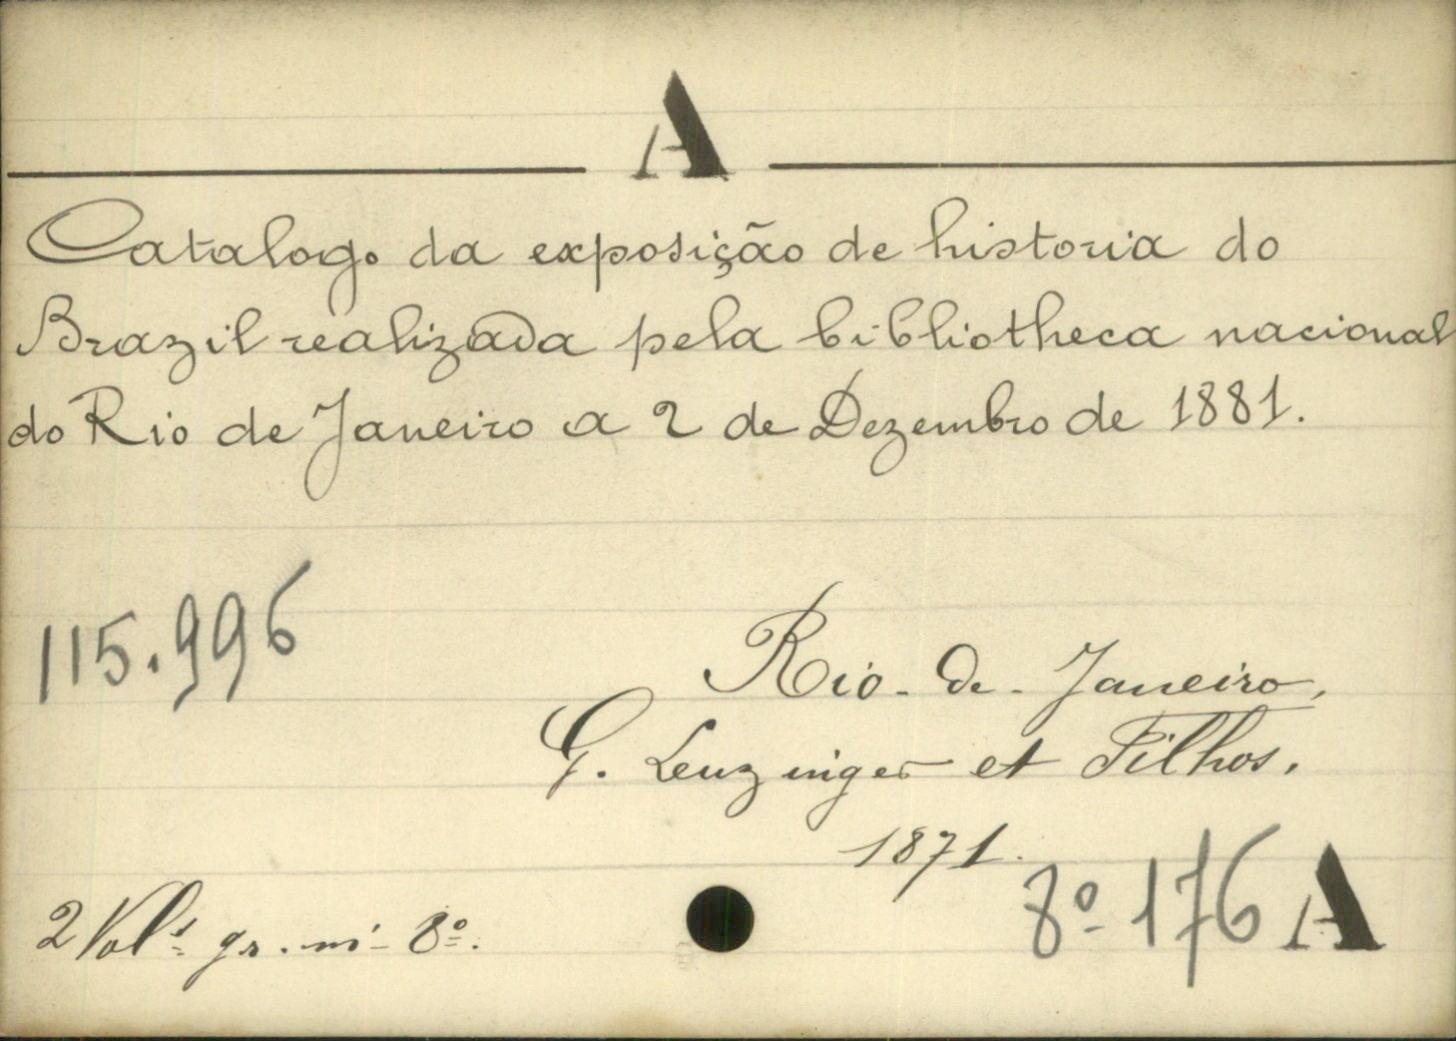 A
Catalogo da exposição de historia do
Brazil realizada pela bibliotheca nacional
do Rio de Janeiro a 2 de Dezembro de 1881.
115.996
Rio-de-Janeiro,
G. Leuzinger et Filhos.
1871.
8º 176 A
2 Vols gr. in-8º.